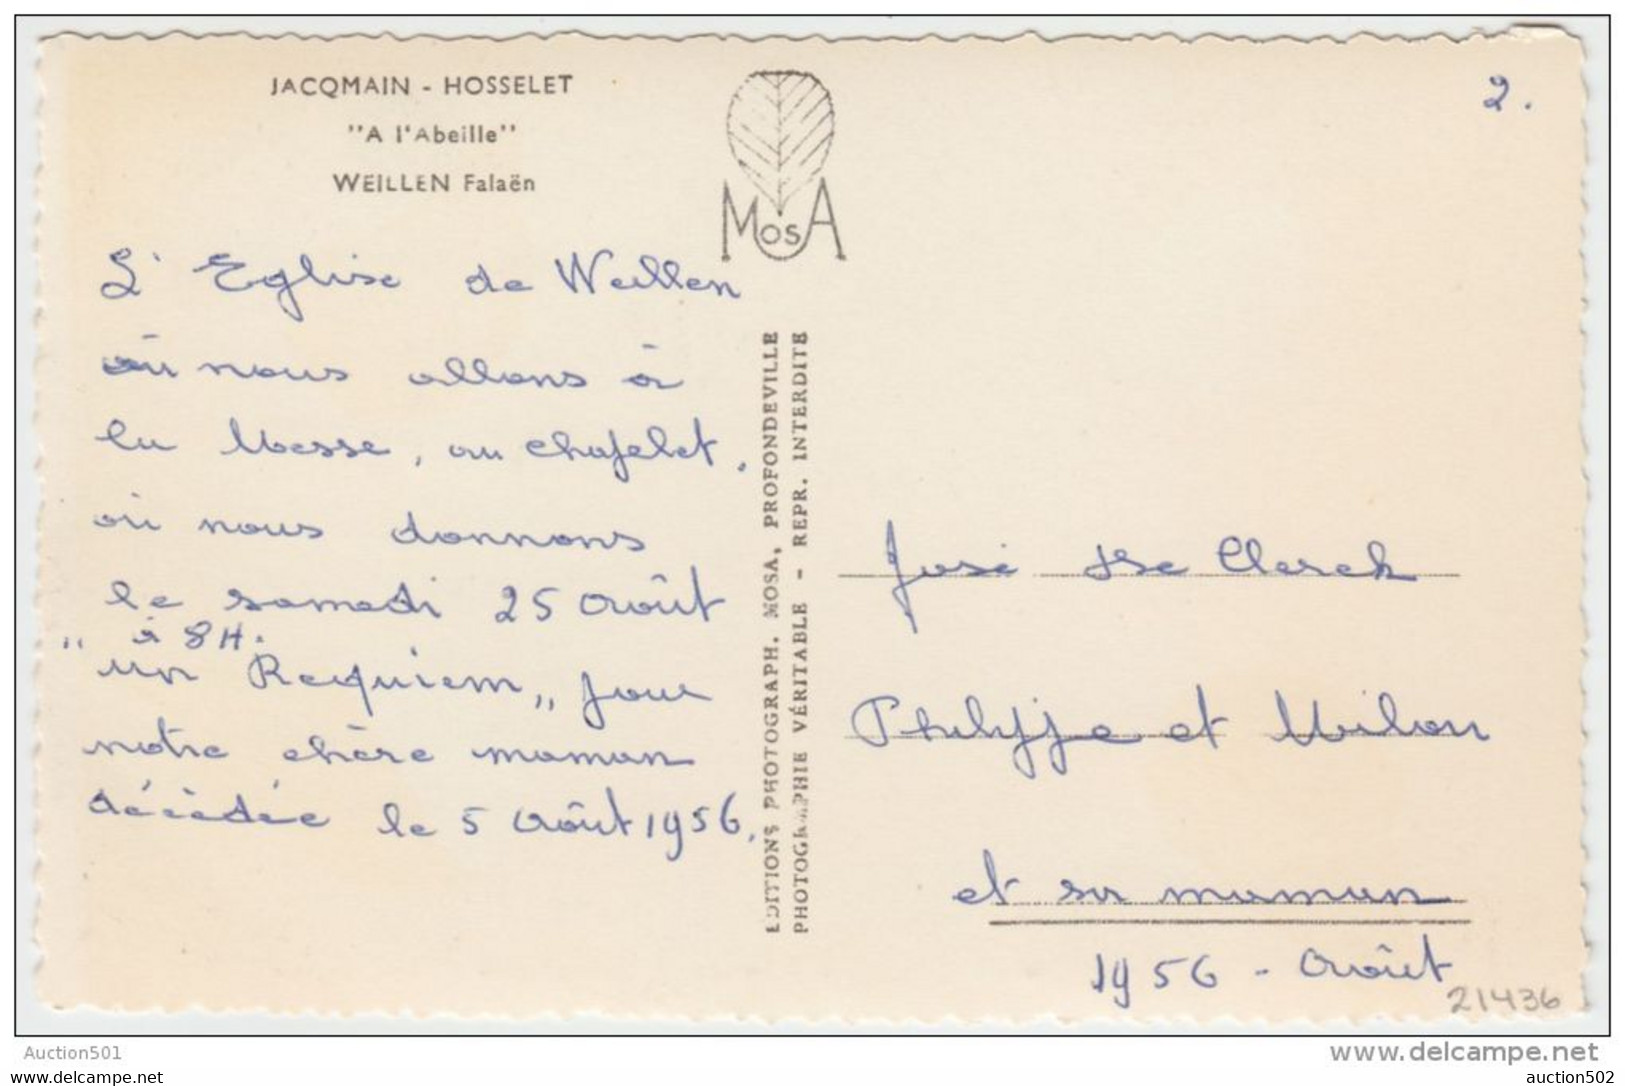 JACQMAIN - HOSSELET
"A l'Abeille"
WEILLEN Falaën
MOSA
2.
L'Eglise de Weillen
où nous allons à
la Messe, au chapelet.
où nous donnons
le samedi 25 Août
" à 8H.
un Requiem" pour
notre chère maman
décédée le 5 Août 1956.
EDITIONS PHOTOGRAPH. MOSA, PROFONDEVILLE
PHOTOGRAPHIE VÉRITABLE - REPR. INTERDITE
José De Clerck
Philippe et Milou
et sa maman
1956 - Août
21436
Auction501
www.delcampe.net
auction501.be
auction502